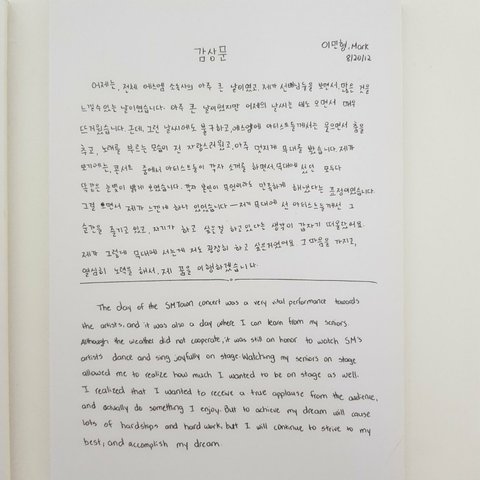 감상문
이민형, Mark
8/20/12
어제는, 전체 에스엠 소속사의 아주 큰 날이였고, 제가 선배님들을 보면서, 많은 것을
느낄수있는 날이였습니다. 아주 큰 날이였지만 어제의 날씨는 매우
뜨거웠습니다. 근데, 그런 날씨에도 불구하고, 에스엠에 아티스트들께서는 웃으면서 춤을
추고, 노래를 부르는 모습이 전 자랑스러웠고, 아주 멋지게 무대를 봤습니다. 제가
보기에는, 콘서트 중에서 아티스트들이 각자 소개를 하면서, 무대에 섰던 모두다
똑같은 눈빛이 보였습니다. 각자 본인이 무엇이라도 만족하게 해냈다는 표정이였습니다.
그걸 보면서 제가 느낀게 하나 있었습니다 — 자기 무대에 선 아티스트들께선 그
순간을 즐기고 있고, 자기가 하고 싶은걸 하고있다는 생각이 갑자기 떠올랐어요.
제가 그렇게 무대에 서는게 저도 굉장히 하고 싶은거였어요. 그 마음을 가지고,
열심히 노력을 해서, 제 꿈을 이행하겠습니다.
The day of the SMTown concert was a very vital performance towards
the artists, and it was also a day where I can learn from my seniors.
Although the weather did not cooperate, it was still an honor to watch SM's
artists dance and sing joyfully on stage. Watching my seniors on stage
allowed me to realize how much I wanted to be on stage as well.
I realized that I wanted to receive a true applause from the audience,
and actually do something I enjoy. But to achieve my dream will cause
lots of hardships and hard work, but I will continue to strive to my
best, and accomplish my dream.